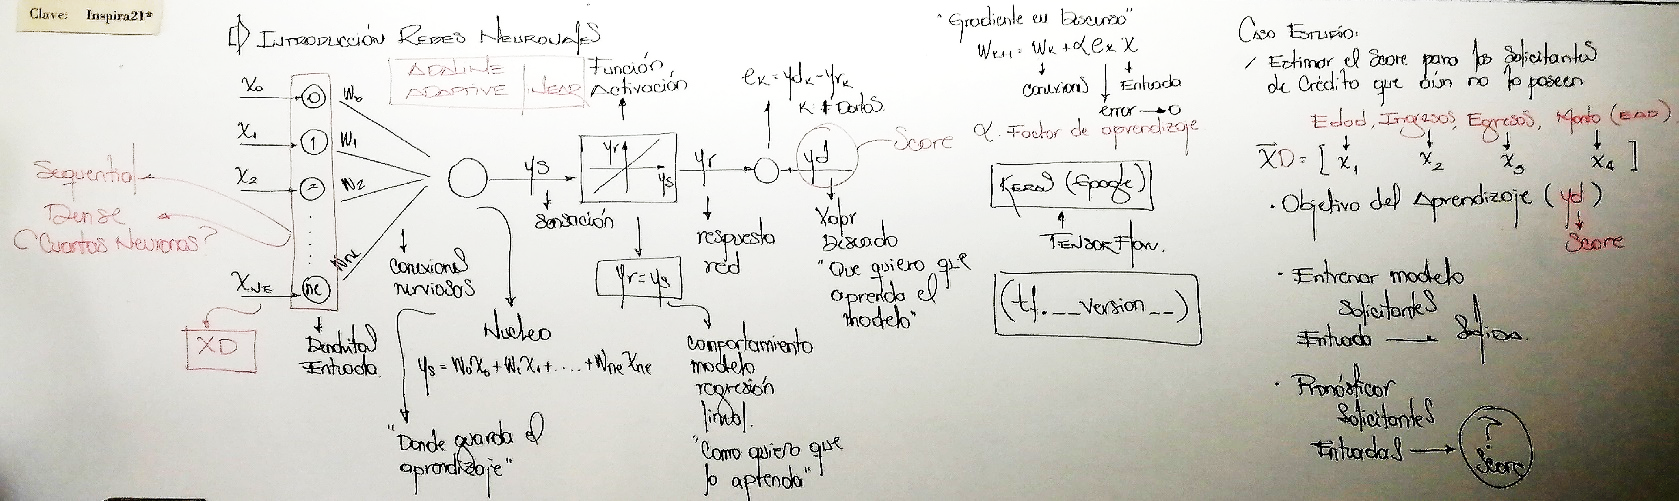 Clave: Inspira21*
1) INTRODUCCIÓN REDES NEURONALES
ADALINE
ADAPTIVE LINEAR
Función
Activación
X₀
X₁
X₂
X_NE
0
1
2
ne
W₀
W₁
W₂
W_ne
Sequential
Dense
(Cuantas Neuronas?
XD
Dendritas
Entrada
conexiones
nerviosas
"Donde guarda el
aprendizaje"
Nucleo
ys = W₀X₀ + W₁X₁ + .... + W_ne X_ne
ys
sensación
yr
ys
yr = ys
comportamiento
modelo
regresión
lineal.
"Como quiero que
lo aprenda"
yr
respuesta
red
e_K = yd_K - yr_K
K # Datos.
yd
Score
Valor
Deseado
"Que quiero que
aprenda el
modelo"
"Gradiente en Descenso"
W_K+1 = W_K + α e_K X
conexiones
error → 0
Entrada
α. Factor de aprendizaje
Keras (Google)
TENSOR Flow.
(tf.__version__)
CASO ESTUDIO:
/ Estimar el Score para los Solicitantes
de Crédito que aún no lo poseen
Edad, Ingresos, Egresos, Monto (EAD)
XD = [ X₁ X₂ X₃ X₄ ]
· Objetivo del Aprendizaje (yd)
Score
· Entrenar modelo
Solicitantes
Entrada → Salida
· Pronósticar
Solicitantes
Entradas → ?
Score